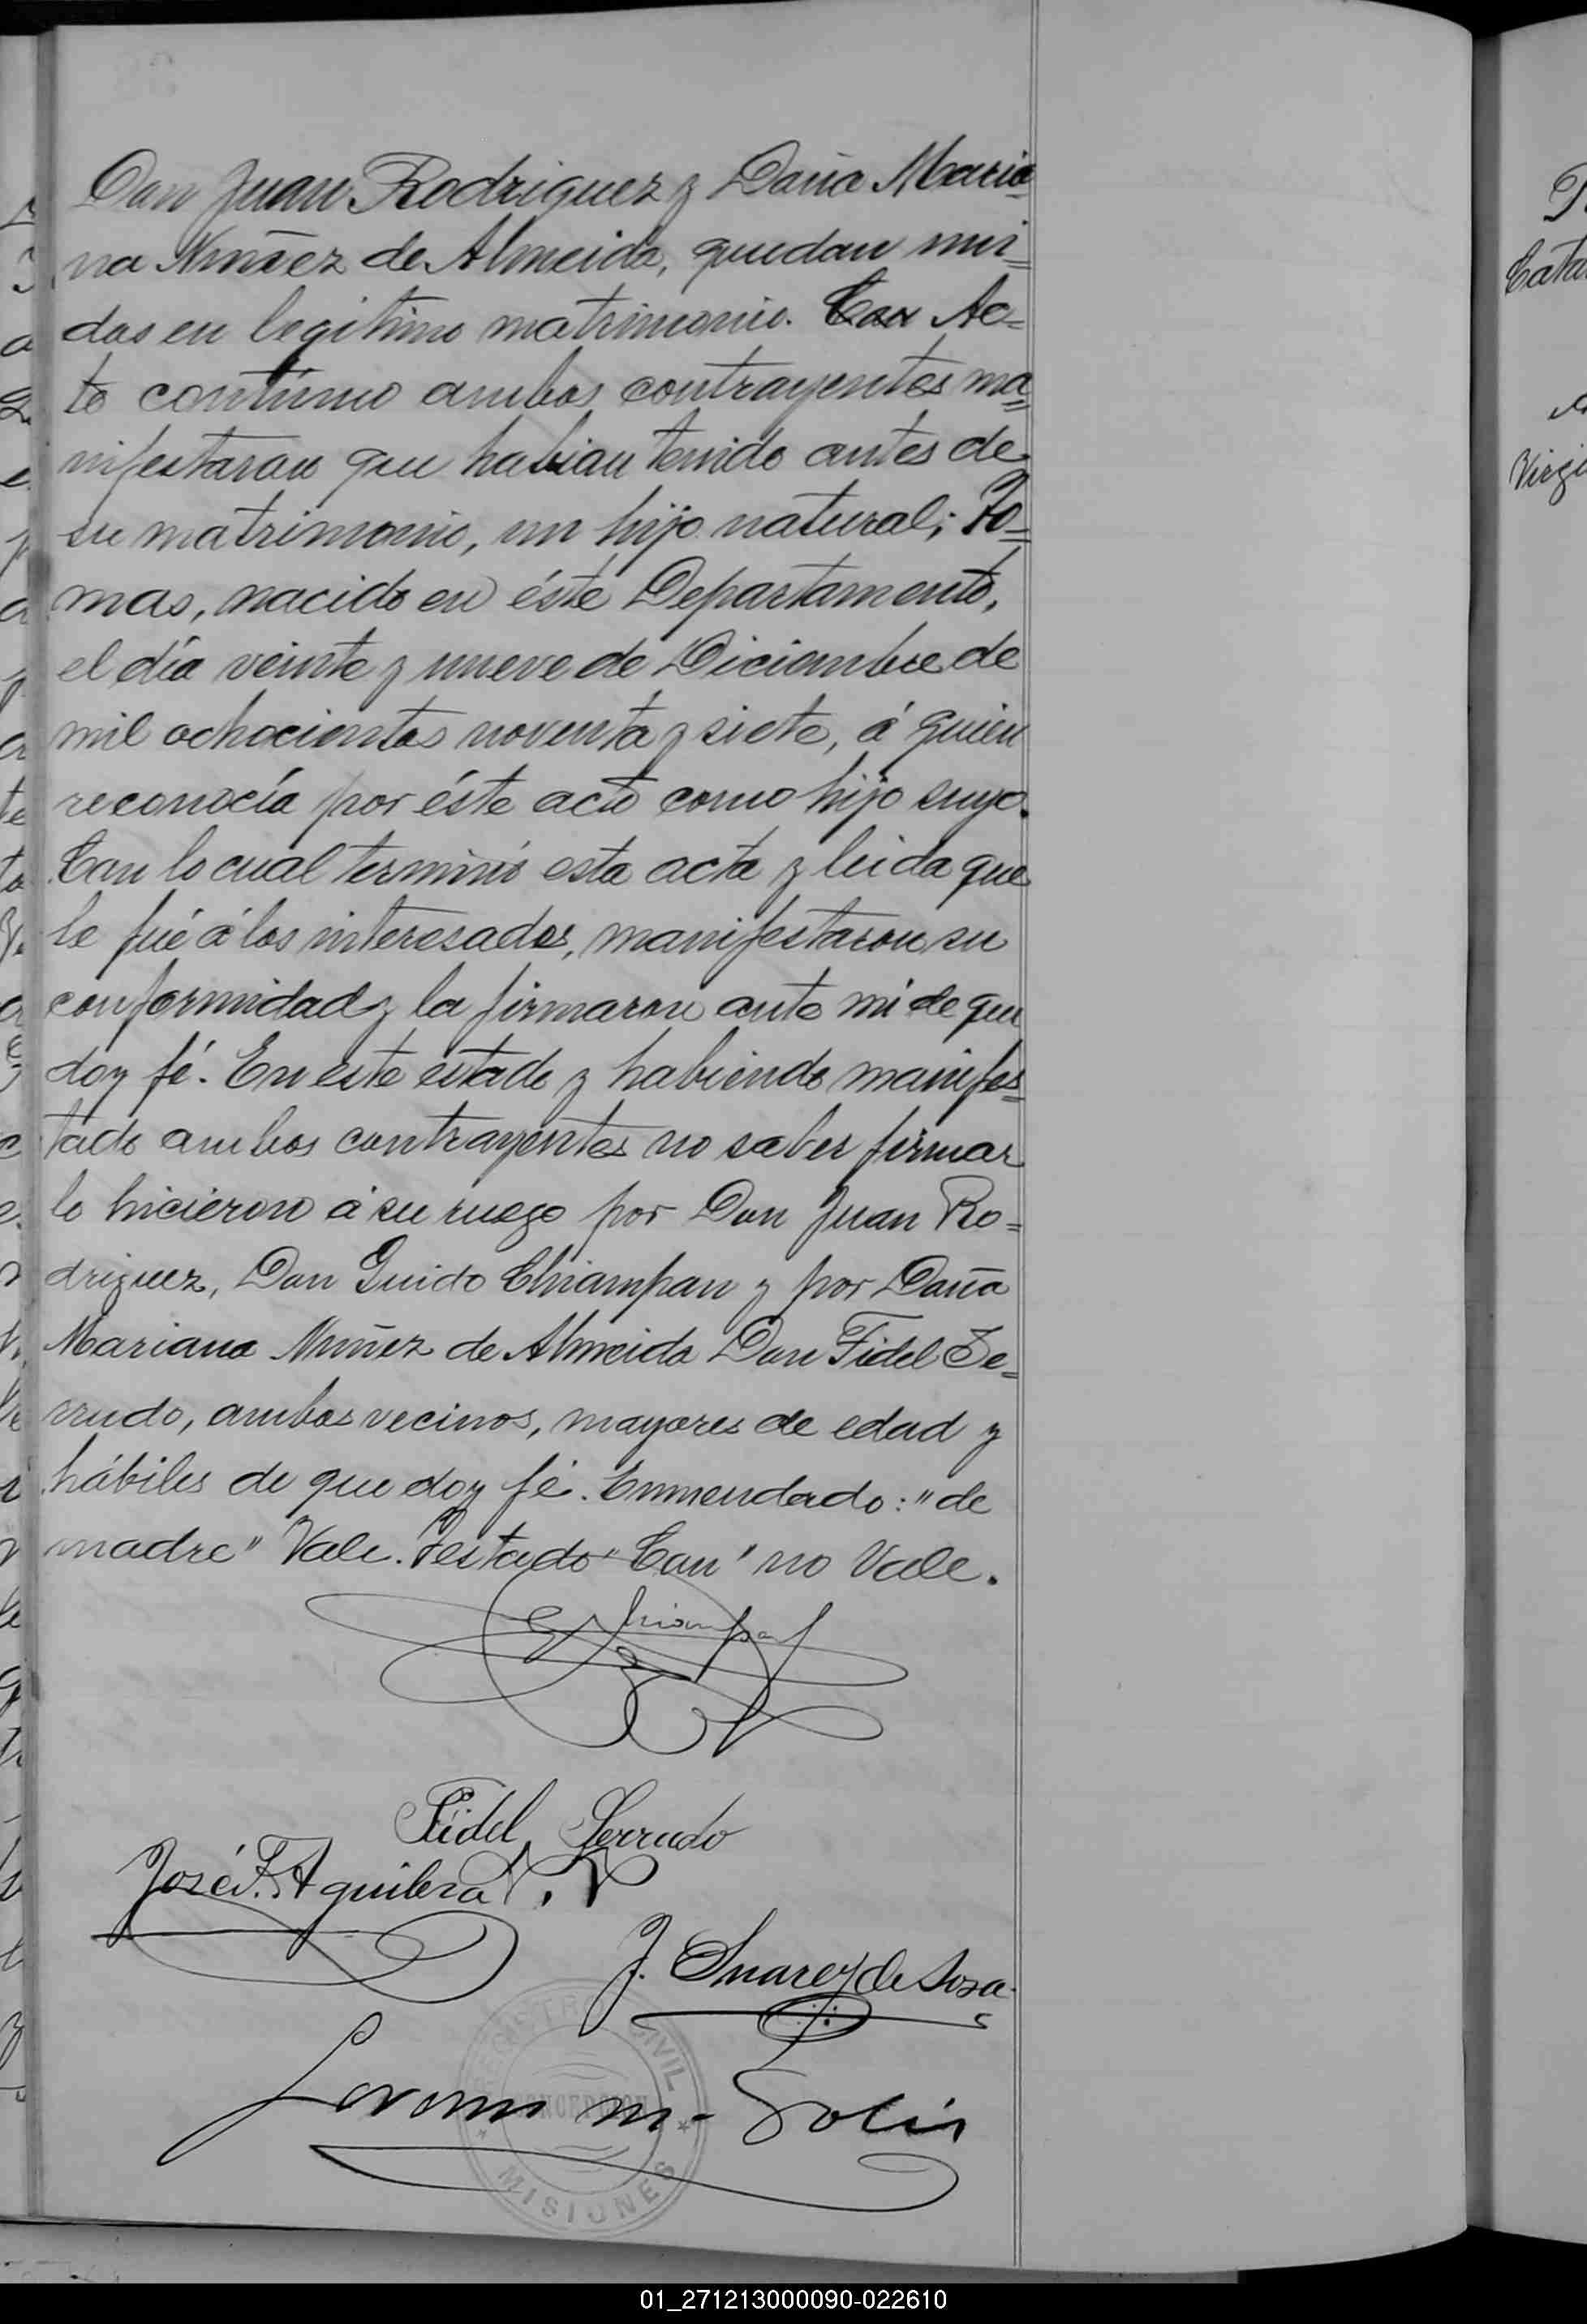 Don Juan Rodriguez y Doña Maria=
na Nuñez de Almeida, quedan uni=
dos en legitimo matrimonio. Con Ac=
to contínuo ambos contrayentes ma=
nifestaron que habian tenido antes de
su matrimonio, un hijo natural; To=
mas, nacido en éste Departamento,
el día veinte y nueve de Diciembre de
mil ochocientos noventa y siete, á quien
reconocía por éste acto como hijo suyo.
Con lo cual terminó esta acta y leida que
le fué á los interesados, manifestaron su
conformidad y la firmaron ante mi de que
doy fé. En este estado y habiendo manifes=
tado ambos contrayentes no saber firmar
lo hicieron á su ruego por Don Juan Ro=
driguez, Don Guido Chiampan y por Doña
Mariana Nuñez de Almeida Don Fidel Se=
rrudo, ambos vecinos, mayores de edad y
hábiles de que doy fé. Enmendado: "de
madre" Vale. Testado "Con" no Vale.
G Chiampan
Fidel Serrudo
José F. Aguilera
J. Suarez de Sosa
m. Solis
REGISTRO CIVIL
CONCEPCION
MISIONES
Cata
Virgi
01_271213000090-022610